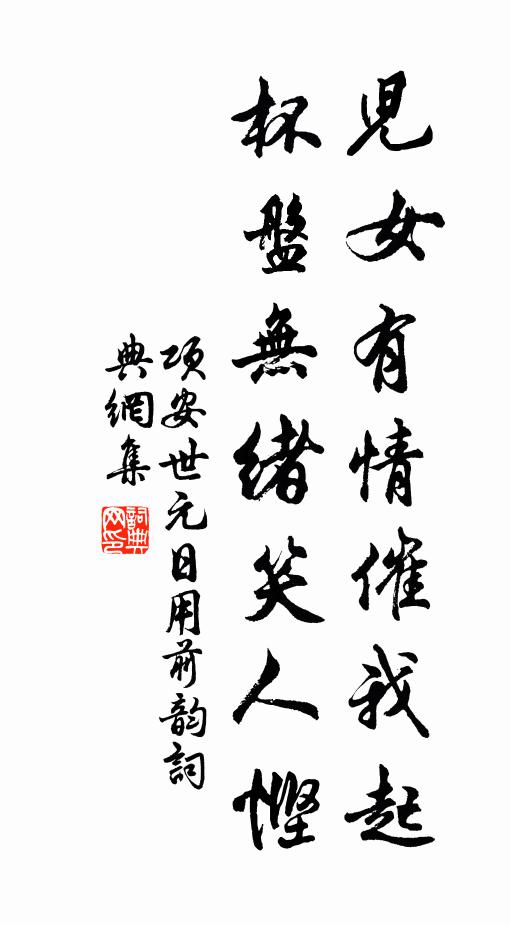 兒女有情催我起
杯盤無緒笑人慳
項安世元日用前韵詞
典網集
詞典
网印